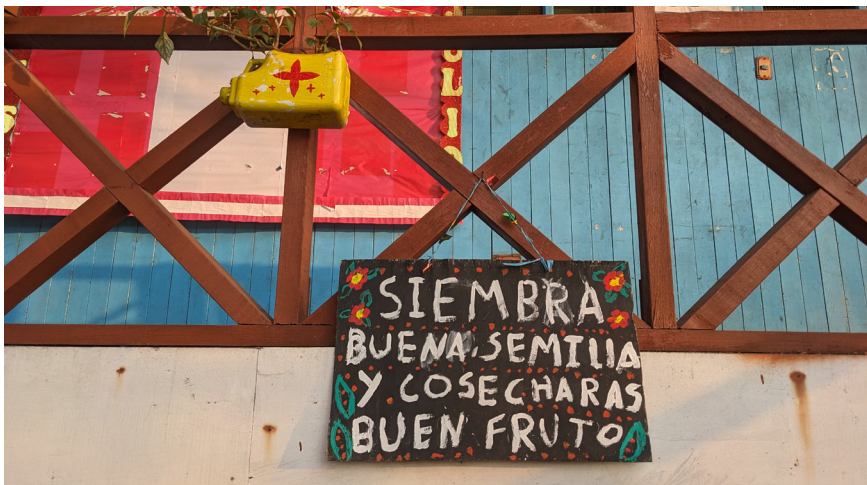 SIEMBRA
BUENA SEMILLA
Y COSECHARAS
BUEN FRUTO